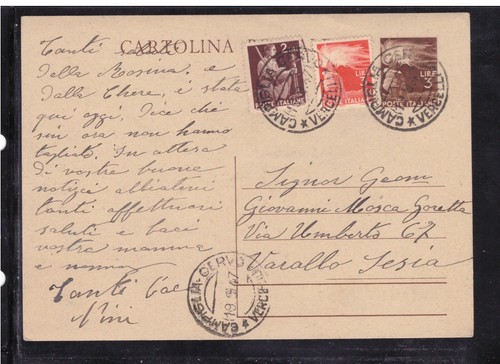 CARTOLINA
Tanti saluti
dalla Rosina e
dalla Chere, è stata
qui oggi. Dice che
sin ora non hanno
tagliato. In attesa
di vostre buone
notizie abbiatevi
tanti affettuosi
saluti e baci
vostra mamma
e nonna
Tanti
Nini
2
POSTE ITALIANE
LIRE 3
POSTE ITALIANE
LIRE 3
POSTE ITALIANE
CAMPIGLIA CERVO
★ VERCELLI
CAMPIGLIA CERVO
★ VERCELLI
Signor Geom
Giovanni Mosca Goretta
Via Umberto 67
Varallo Sesia
CAMPIGLIA CERVO
★ VERCELLI